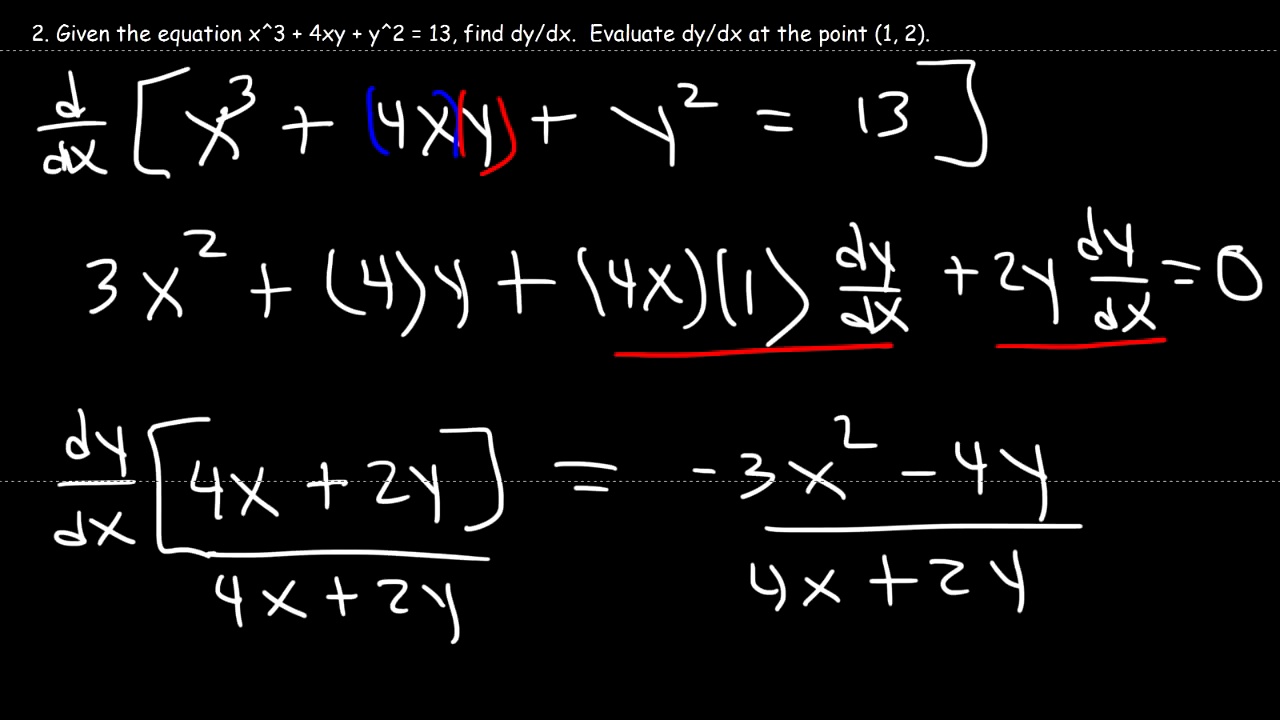 2. Given the equation x^3 + 4xy + y^2 = 13, find dy/dx. Evaluate dy/dx at the point (1, 2).
d/dx [x³ + (4x)(y) + y² = 13]
3x² + (4)y + (4x)(1) dy/dx + 2y dy/dx = 0
dy/dx [4x + 2y] / 4x + 2y = -3x² - 4y / 4x + 2y